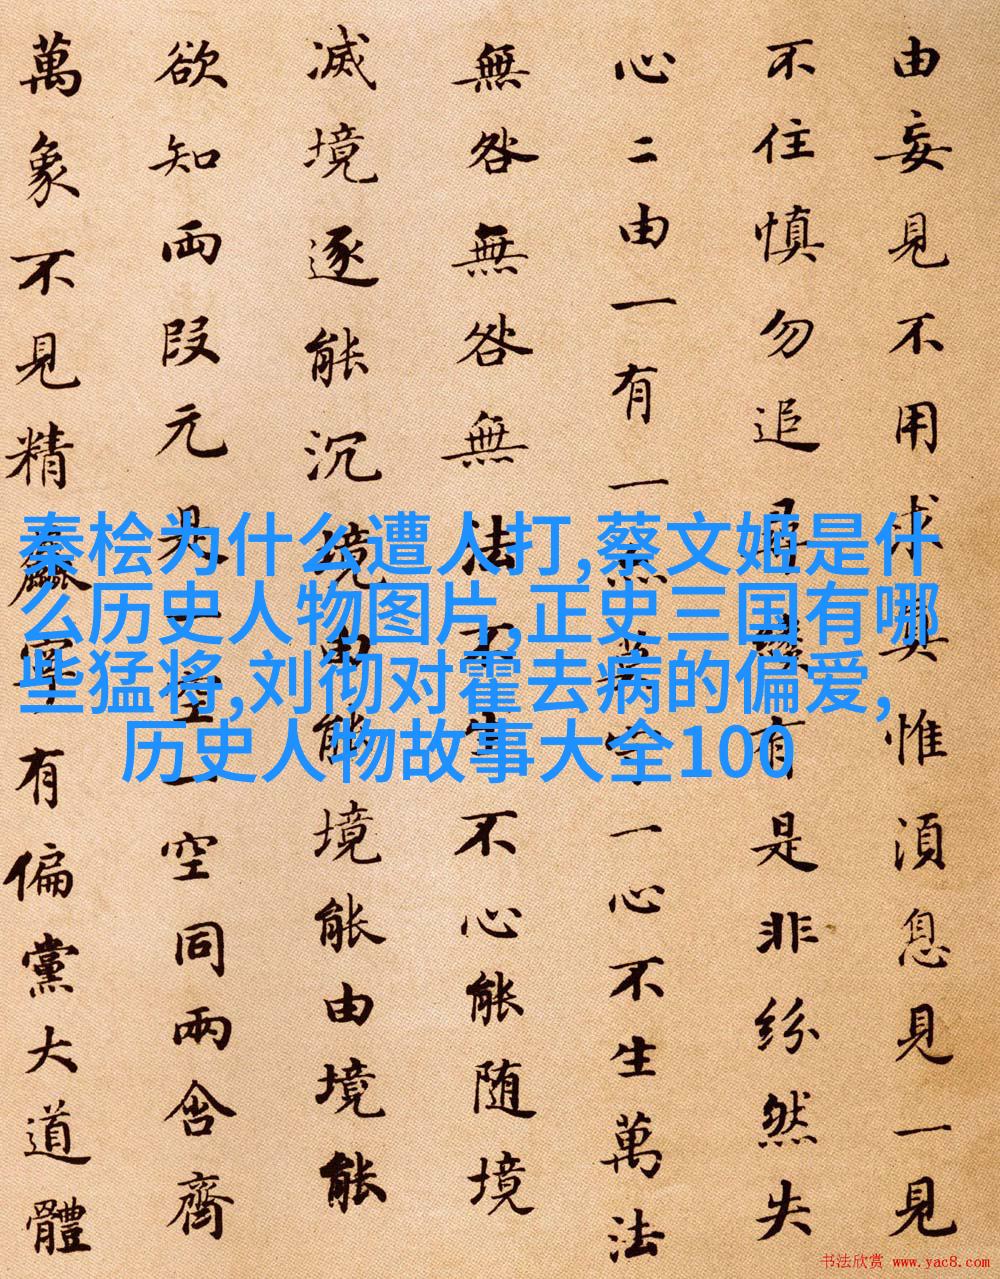 由妄見不用求真惟須息見一見
不住慎勿追尋纔有是非紛然失
心二由一有一亦莫守一心不生萬法
無咎無咎無法不生不心能随境
滅境逐能沉境由能境能由境能
欲知兩段元是一空一空同兩含齊
萬象不見精麤寧有偏黨大道體
秦桧为什么遭人打,蔡文姬是什
么历史人物图片,正史三国有哪
些猛将,刘彻对霍去病的偏爱,
历史人物故事大全100
书法欣赏 www.yac8.com